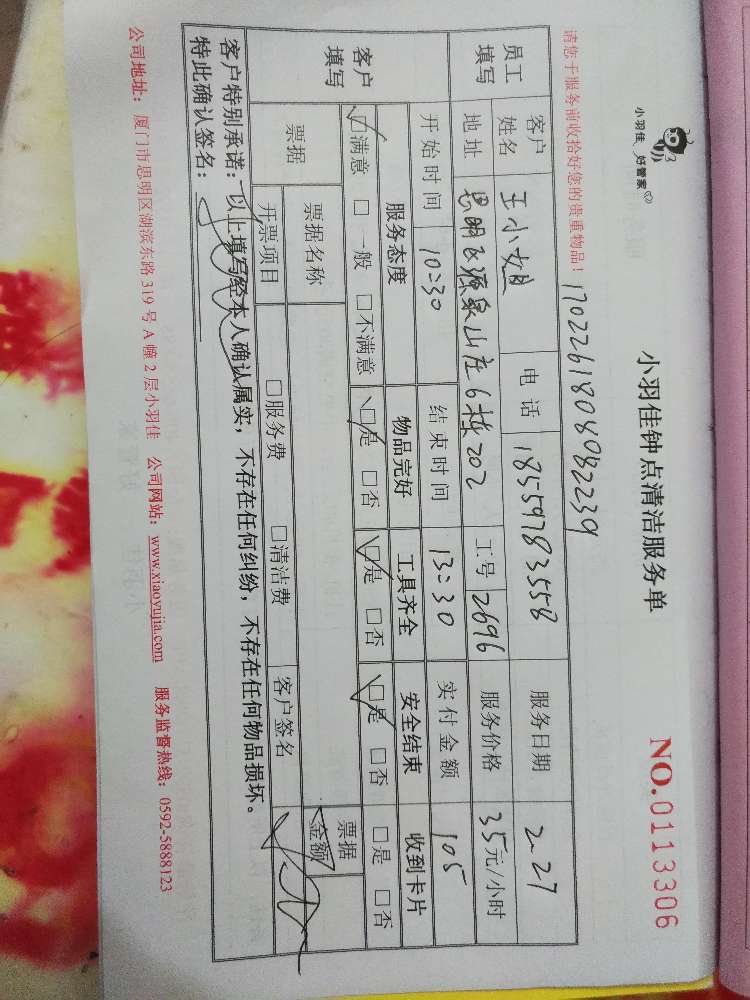 小羽佳 好管家
小羽佳钟点清洁服务单
NO.0113306
请您于服务前收拾好您的贵重物品！
170226180808082239
员工填写 客户姓名 王小姐 电话 18559783558 服务日期 2.27
地址 思明区源泉山庄6栋202 工号 2696 服务价格 35元/小时
开始时间 10:30 结束时间 13:30 实付金额 105
客户填写 服务态度 物品完好 工具齐全 安全结束 收到卡片
☑满意 □一般 □不满意 ☑是 □否 ☑是 □否 ☑是 □否 □是 □否
票据 票据名称 票据金额
开票项目 □服务费 □清洁费 客户签名
客户特别承诺：以上填写经本人确认属实，不存在任何纠纷，不存在任何物品损坏。
特此确认签名：
公司地址：厦门市思明区湖滨东路319号A幢2层小羽佳 公司网站：www.xiaoyujia.com 服务监督热线：0592-5888123